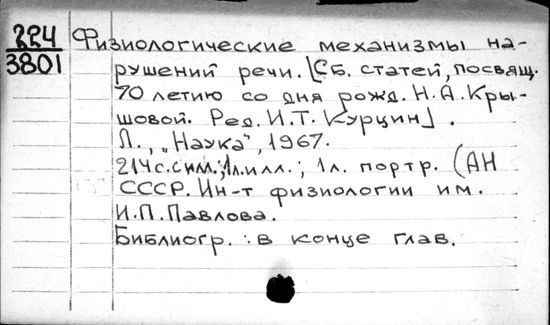 224
3801
Физиологические механизмы на-
рушений речи. [Сб. статей, посвящ.
70 летию со дня рожд. Н.А. Кры-
шовой. Ред. И.Т. Курцин].
Л., „Наука", 1967.
214 с. с илл.; 1л. илл.; 1л. портр. (АН
СССР. Ин-т физиологии им.
И.П. Павлова.
Библиогр.: в конце глав.